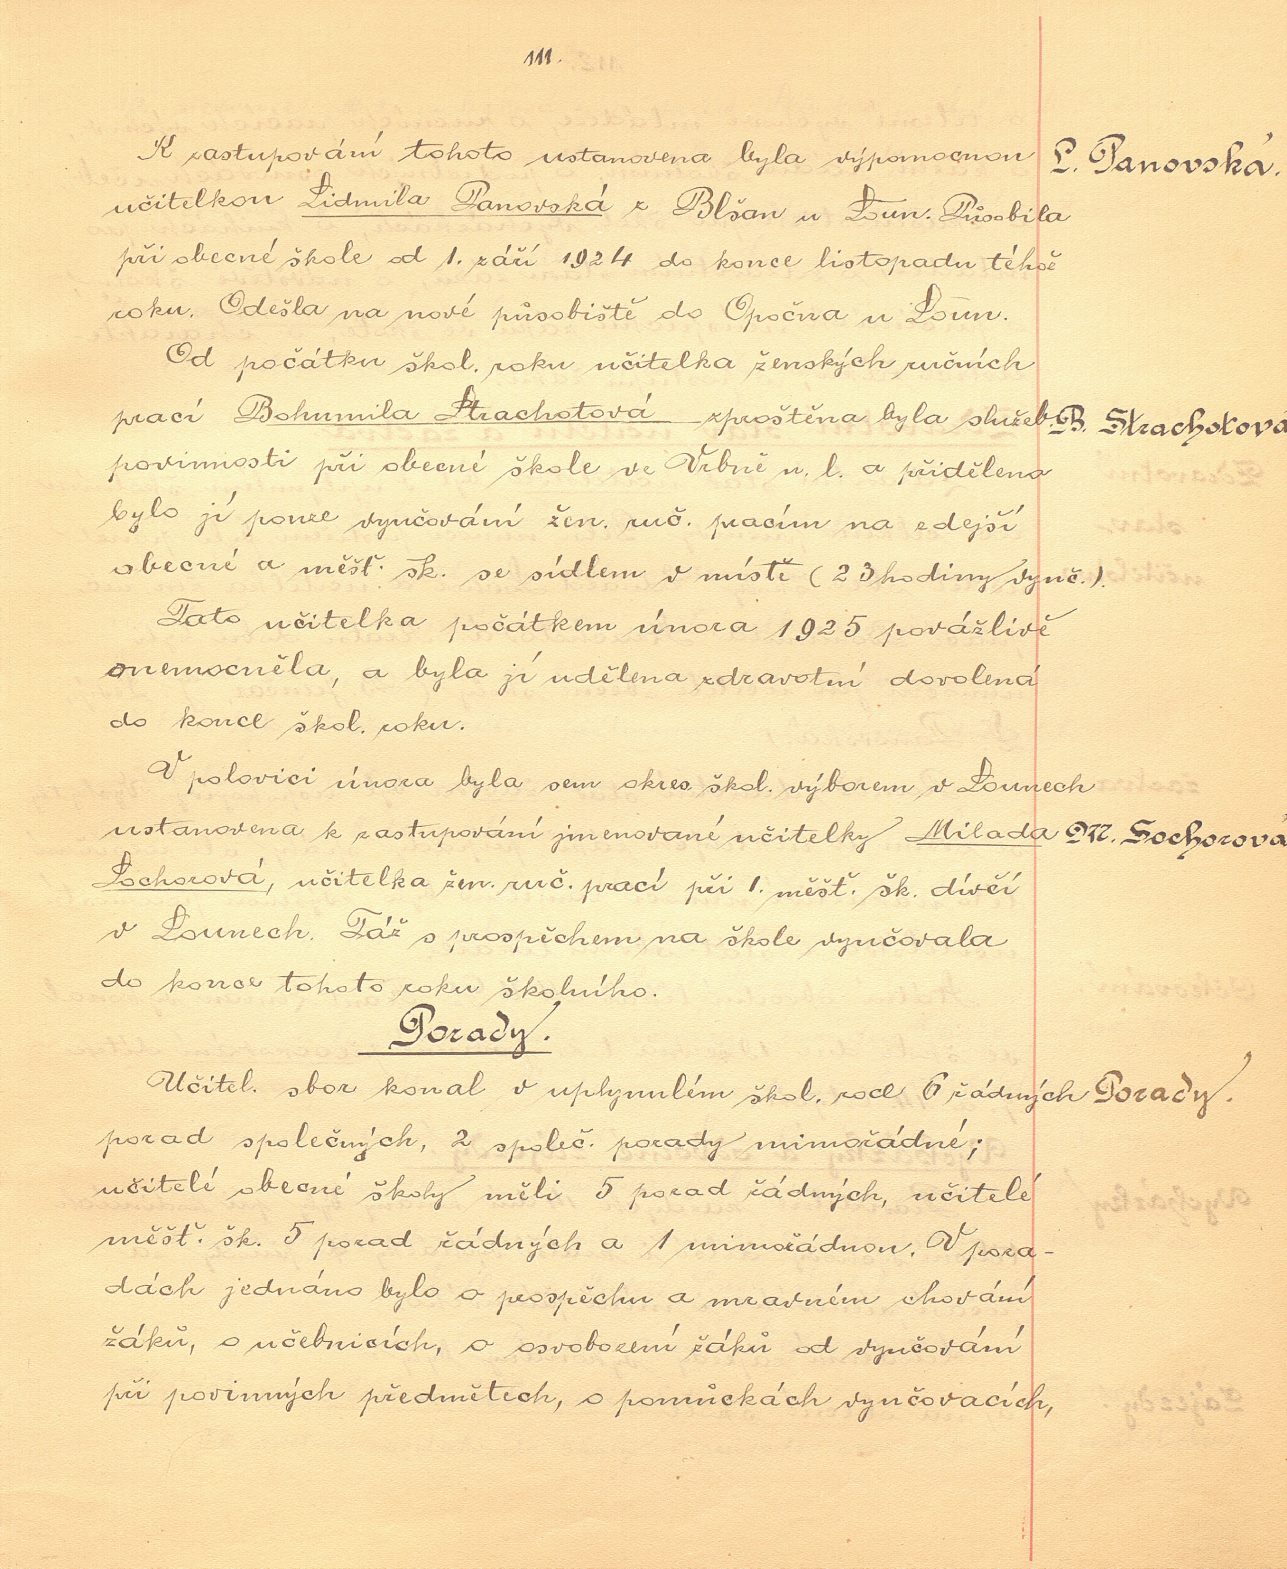 111.
K zastupování tohoto ustanovena byla výpomocnou
L. Panovská.
učitelkou Lidmila Panovská z Blšan u Loun. Působila
při obecné škole od 1. září 1924 do konce listopadu téhož
roku. Odešla na nové působiště do Opočna u Loun.
Od počátku škol. roku učitelka ženských ručních
prací Bohumila Strachotová zproštěna byla služeb.
B. Strachotová
povinnosti při obecné škole ve Vrbně n. l. a přiděleno
bylo jí pouze vyučování žen. ruč. pracím na zdejší
obecné a měšť. šk. se sídlem v místě (23 hodiny vyuč.).
Tato učitelka počátkem února 1925 povážlivě
onemocněla, a byla jí udělena zdravotní dovolená
do konce škol. roku.
V polovici února byla sem okres. škol. výborem v Lounech
ustanovena k zastupování jmenované učitelky Milada
M. Sochorová
Sochorová, učitelka žen. ruč. prací při 1. měšť. šk. dívčí
v Lounech. Táž s prospěchem na škole vyučovala
do konce tohoto roku školního.
Porady.
Učitel. sbor konal v uplynulém škol. roce 6 řádných
Porady.
porad společných, 2 společ. porady mimořádné;
učitelé obecné školy měli 5 porad řádných, učitelé
měšť. šk. 5 porad řádných a 1 mimořádnou. V pora-
dách jednáno bylo o prospěchu a mravném chování
žáků, o učebnicích, o osvobození žáků od vyučování
při povinných předmětech, o pomůckách vyučovacích,